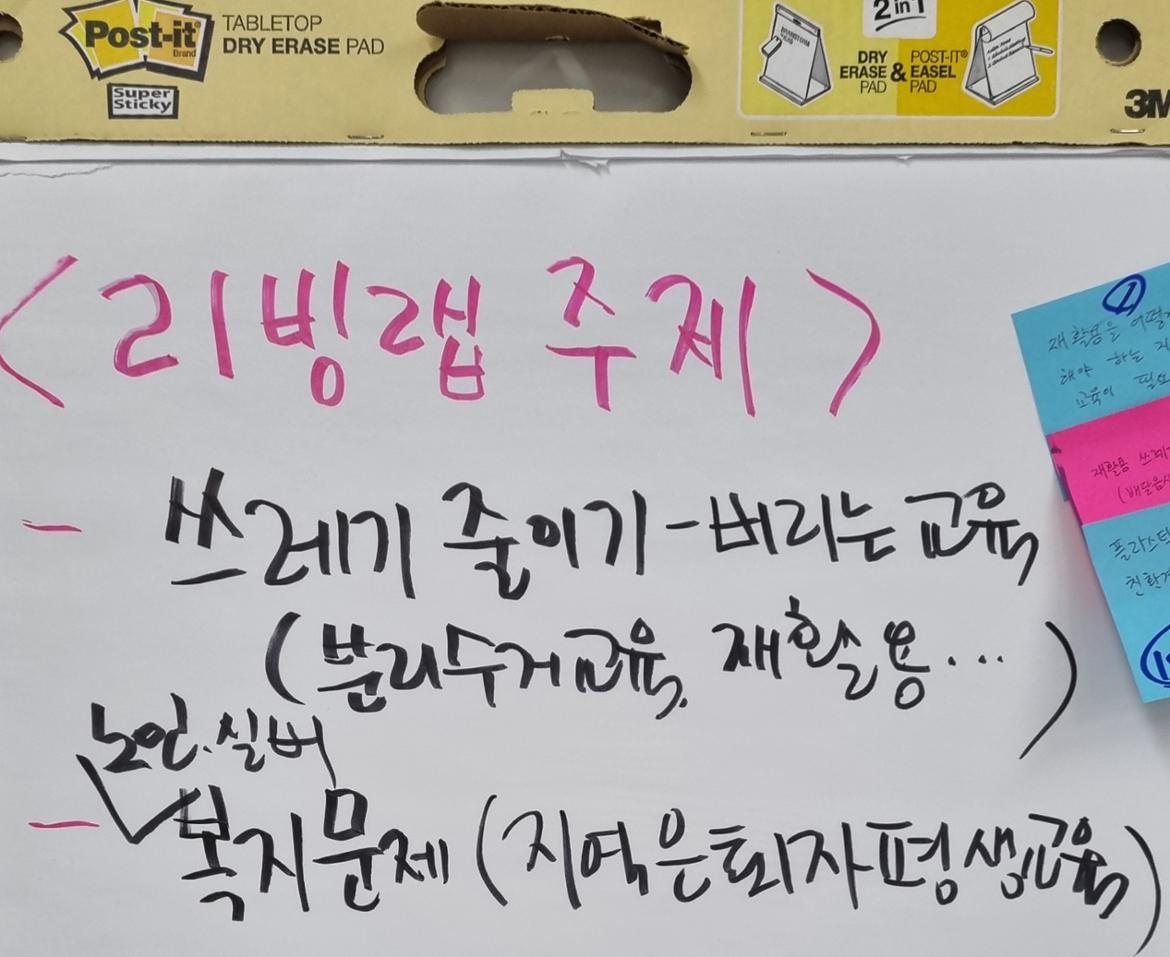 Post-it
Brand
Super
Sticky
TABLETOP
DRY ERASE PAD
2 in 1
DRY
ERASE
PAD
&
POST-IT®
EASEL
PAD
3M
<리빙랩 주제>
- 쓰레기 줄이기 - 버리는 교육
(분리수거교육, 재활용...)
노인.실버
- 복지문제 (지역은퇴자평생교육)
1
재활용을
해야 하는 지
교육이
재활용
플라스틱